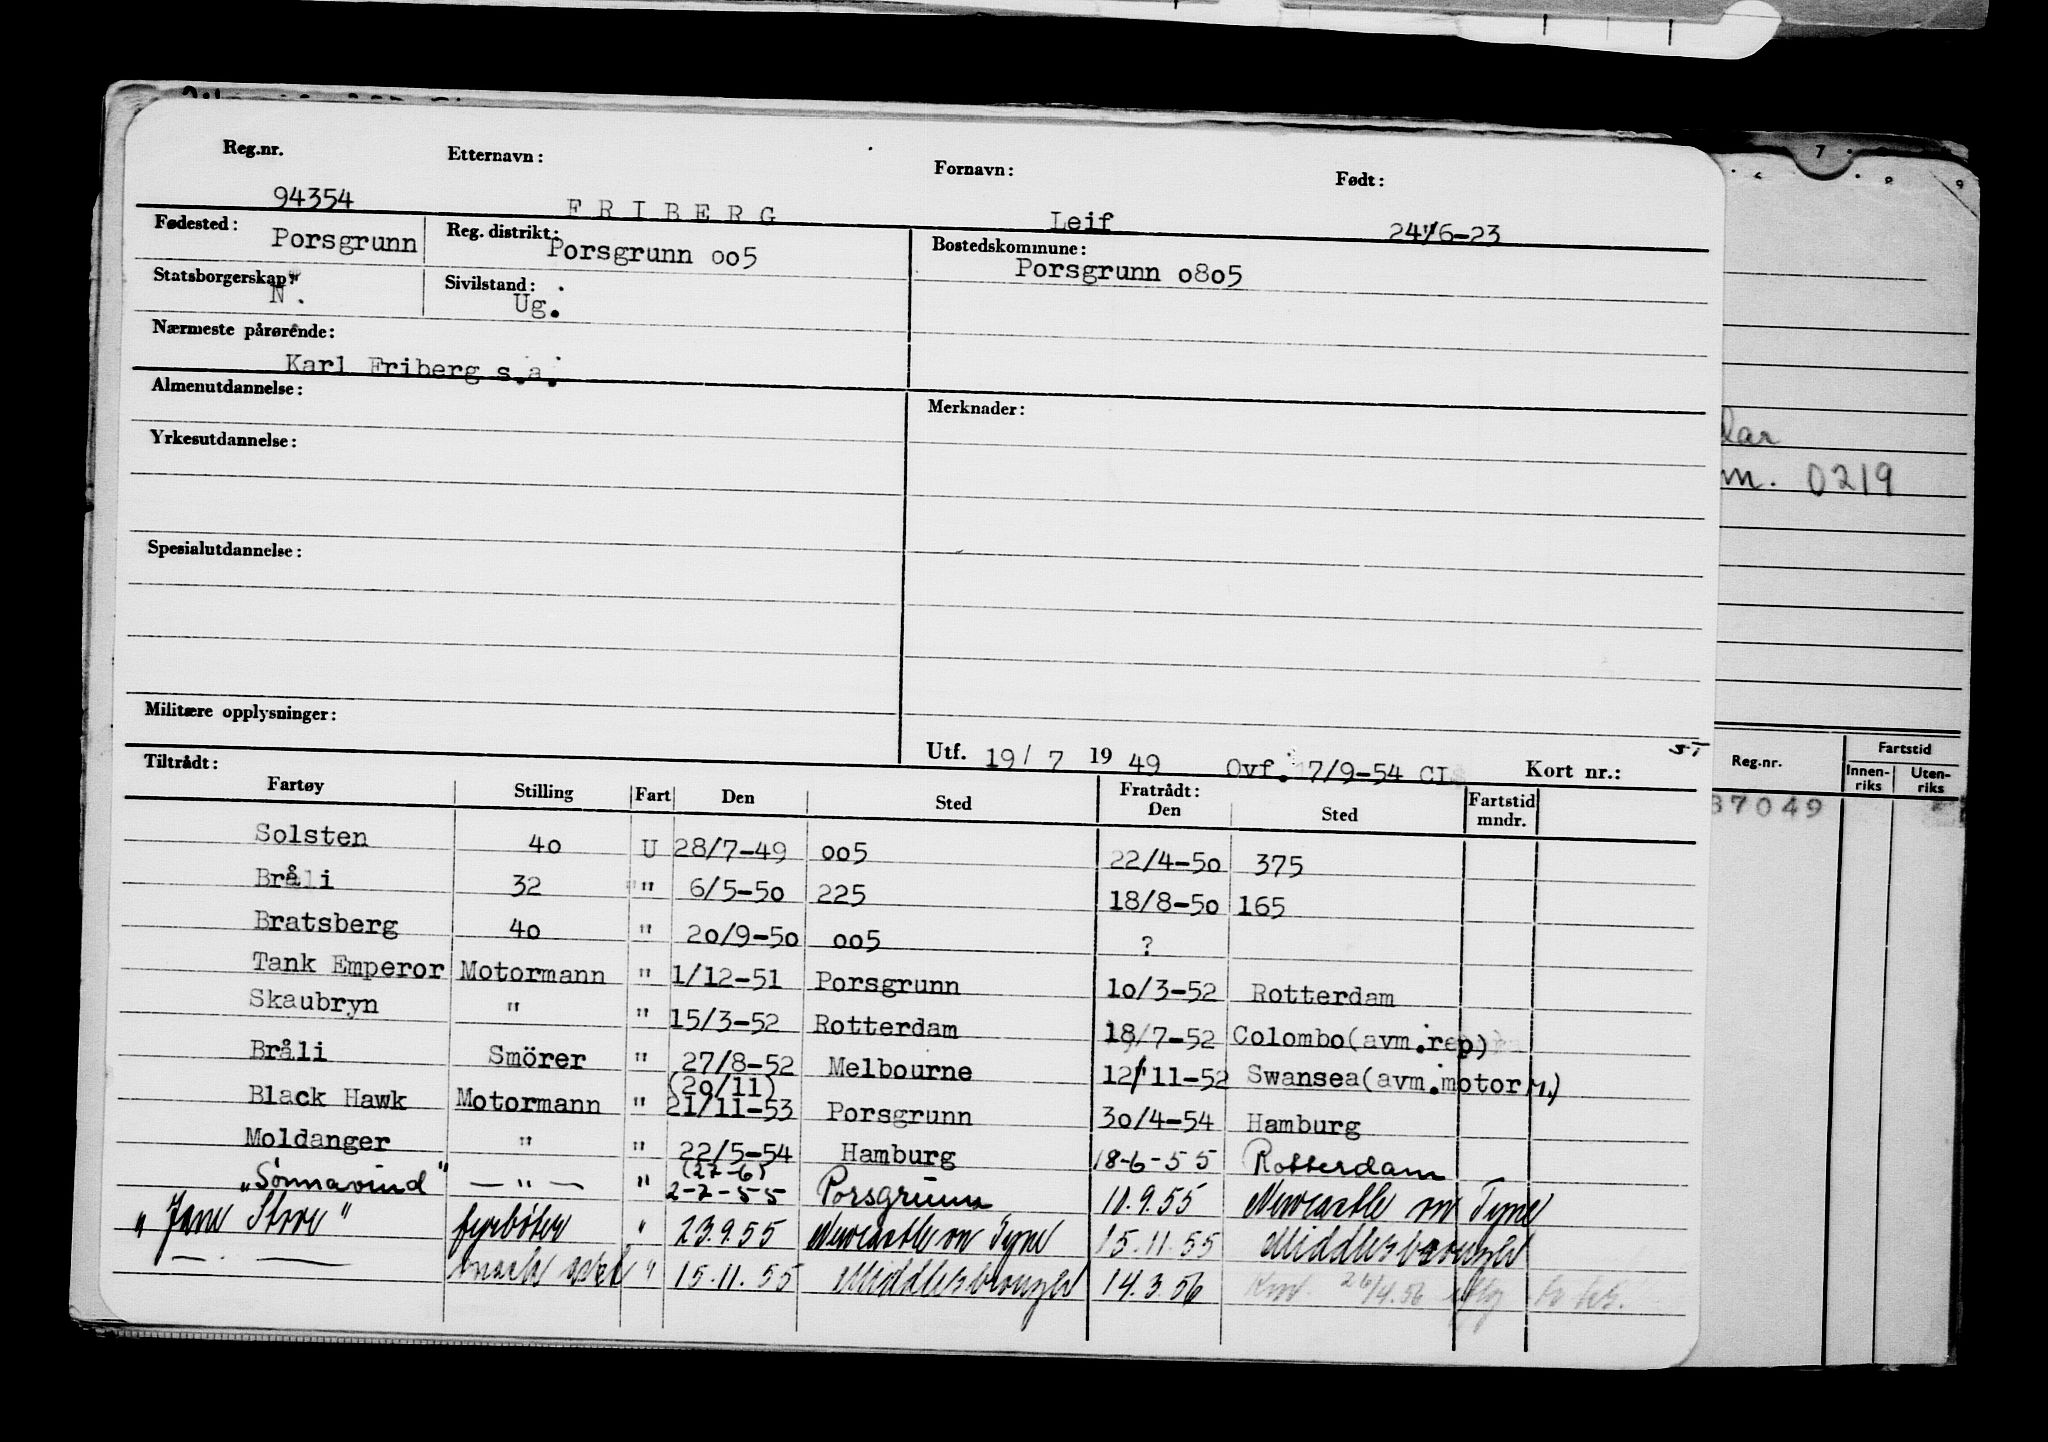 Reg.nr. Etternavn: Fornavn: Født:
94354 FRIBERG Leif 24/6-23
Fødested: Porsgrunn Reg. distrikt: Porsgrunn 005 Bostedskommune: Porsgrunn 0805
Statsborgerskap: N. Sivilstand: Ug.
Nærmeste pårørende:
Karl Friberg s.a.
Almenutdannelse: Merknader:
Yrkesutdannelse:
Spesialutdannelse:
Militære opplysninger:
Utf. 19/ 7 19 49 Ovf. 17/9-54 CI Kort nr.:
Tiltrådt: Fratrådt:
Fartøy Stilling Fart Den Sted Den Sted Fartstid mndr.
Solsten 40 U 28/7-49 005 22/4-50 375
Bråli 32 " 6/5-50 225 18/8-50 165
Bratsberg 40 " 20/9-50 005 ?
Tank Emperor Motormann " 1/12-51 Porsgrunn 10/3-52 Rotterdam
Skaubryn " " 15/3-52 Rotterdam 18/7-52 Colombo(avm.rep)
Bråli Smörer " 27/8-52 Melbourne 12/11-52 Swansea(avm.motor M.)
(20/11)
Black Hawk Motormann " 21/11-53 Porsgrunn 30/4-54 Hamburg
Moldanger " " 22/5-54 Hamburg 18-6-55 Rotterdam
(27-6)
"Sønnavind" — " — " 2-7-55 Porsgrunn 10.9.55 Newcastle on Tyne
"Jane Stove" fyrbøter " 23.9.55 Newcastle on Tyne 15.11.55 Middlesbrough
— " — " 15.11.55 Middlesbrough 14.3.56 26/4.56
7
lar
m. 0219
Reg.nr. Fartstid
Innenriks Utenriks
37049